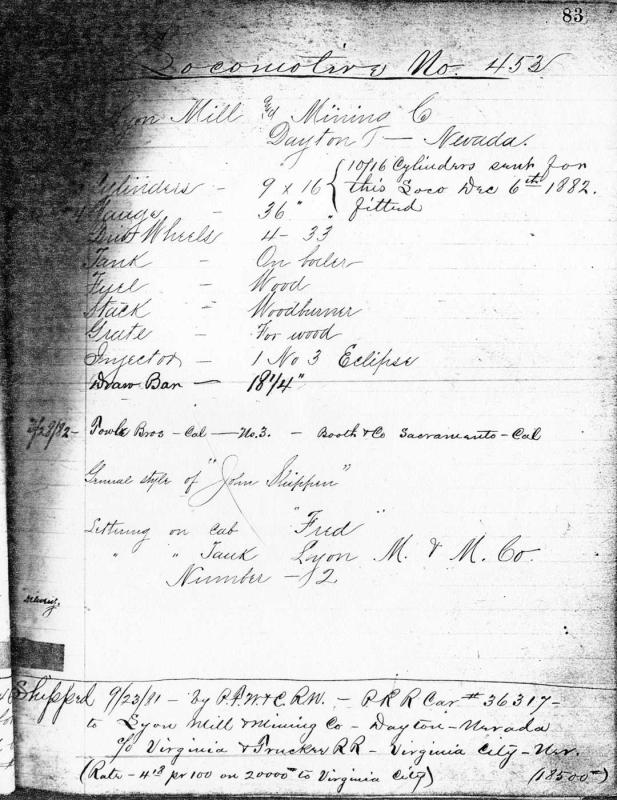 83
Locomotive No. 453
Lyon Mill and Mining Co
Dayton T — Nevada.
Cylinders - 9 x 16 { 10/16 Cylinders sent for
this Loco Dec 6th 1882.
fitted
Gauge - 36"
Driv Wheels 4 - 33"
Tank - On boiler
Fuel - Wood
Stack - Woodburner
Grate - For wood
Injector - 1 No 3 Eclipse
Draw Bar — 18 1/4"
/29/82 - Towle Bros - Cal — No. 3. - Booth & Co Sacramento - Cal
General style of "John Skippen"
Lettering on Cab "Fred"
" " Tank Lyon M. & M. Co.
Number - 2
Shipped 9/23/81 - by P.F.W. & C. R.W. - P R R Car # 36317 -
to Lyon Mill & Mining Co - Dayton - Nevada
c/o Virginia & Truckee RR - Virginia City - Nev.
(Rate - 4 13 pr 100 on 20000 to Virginia City) (18500)